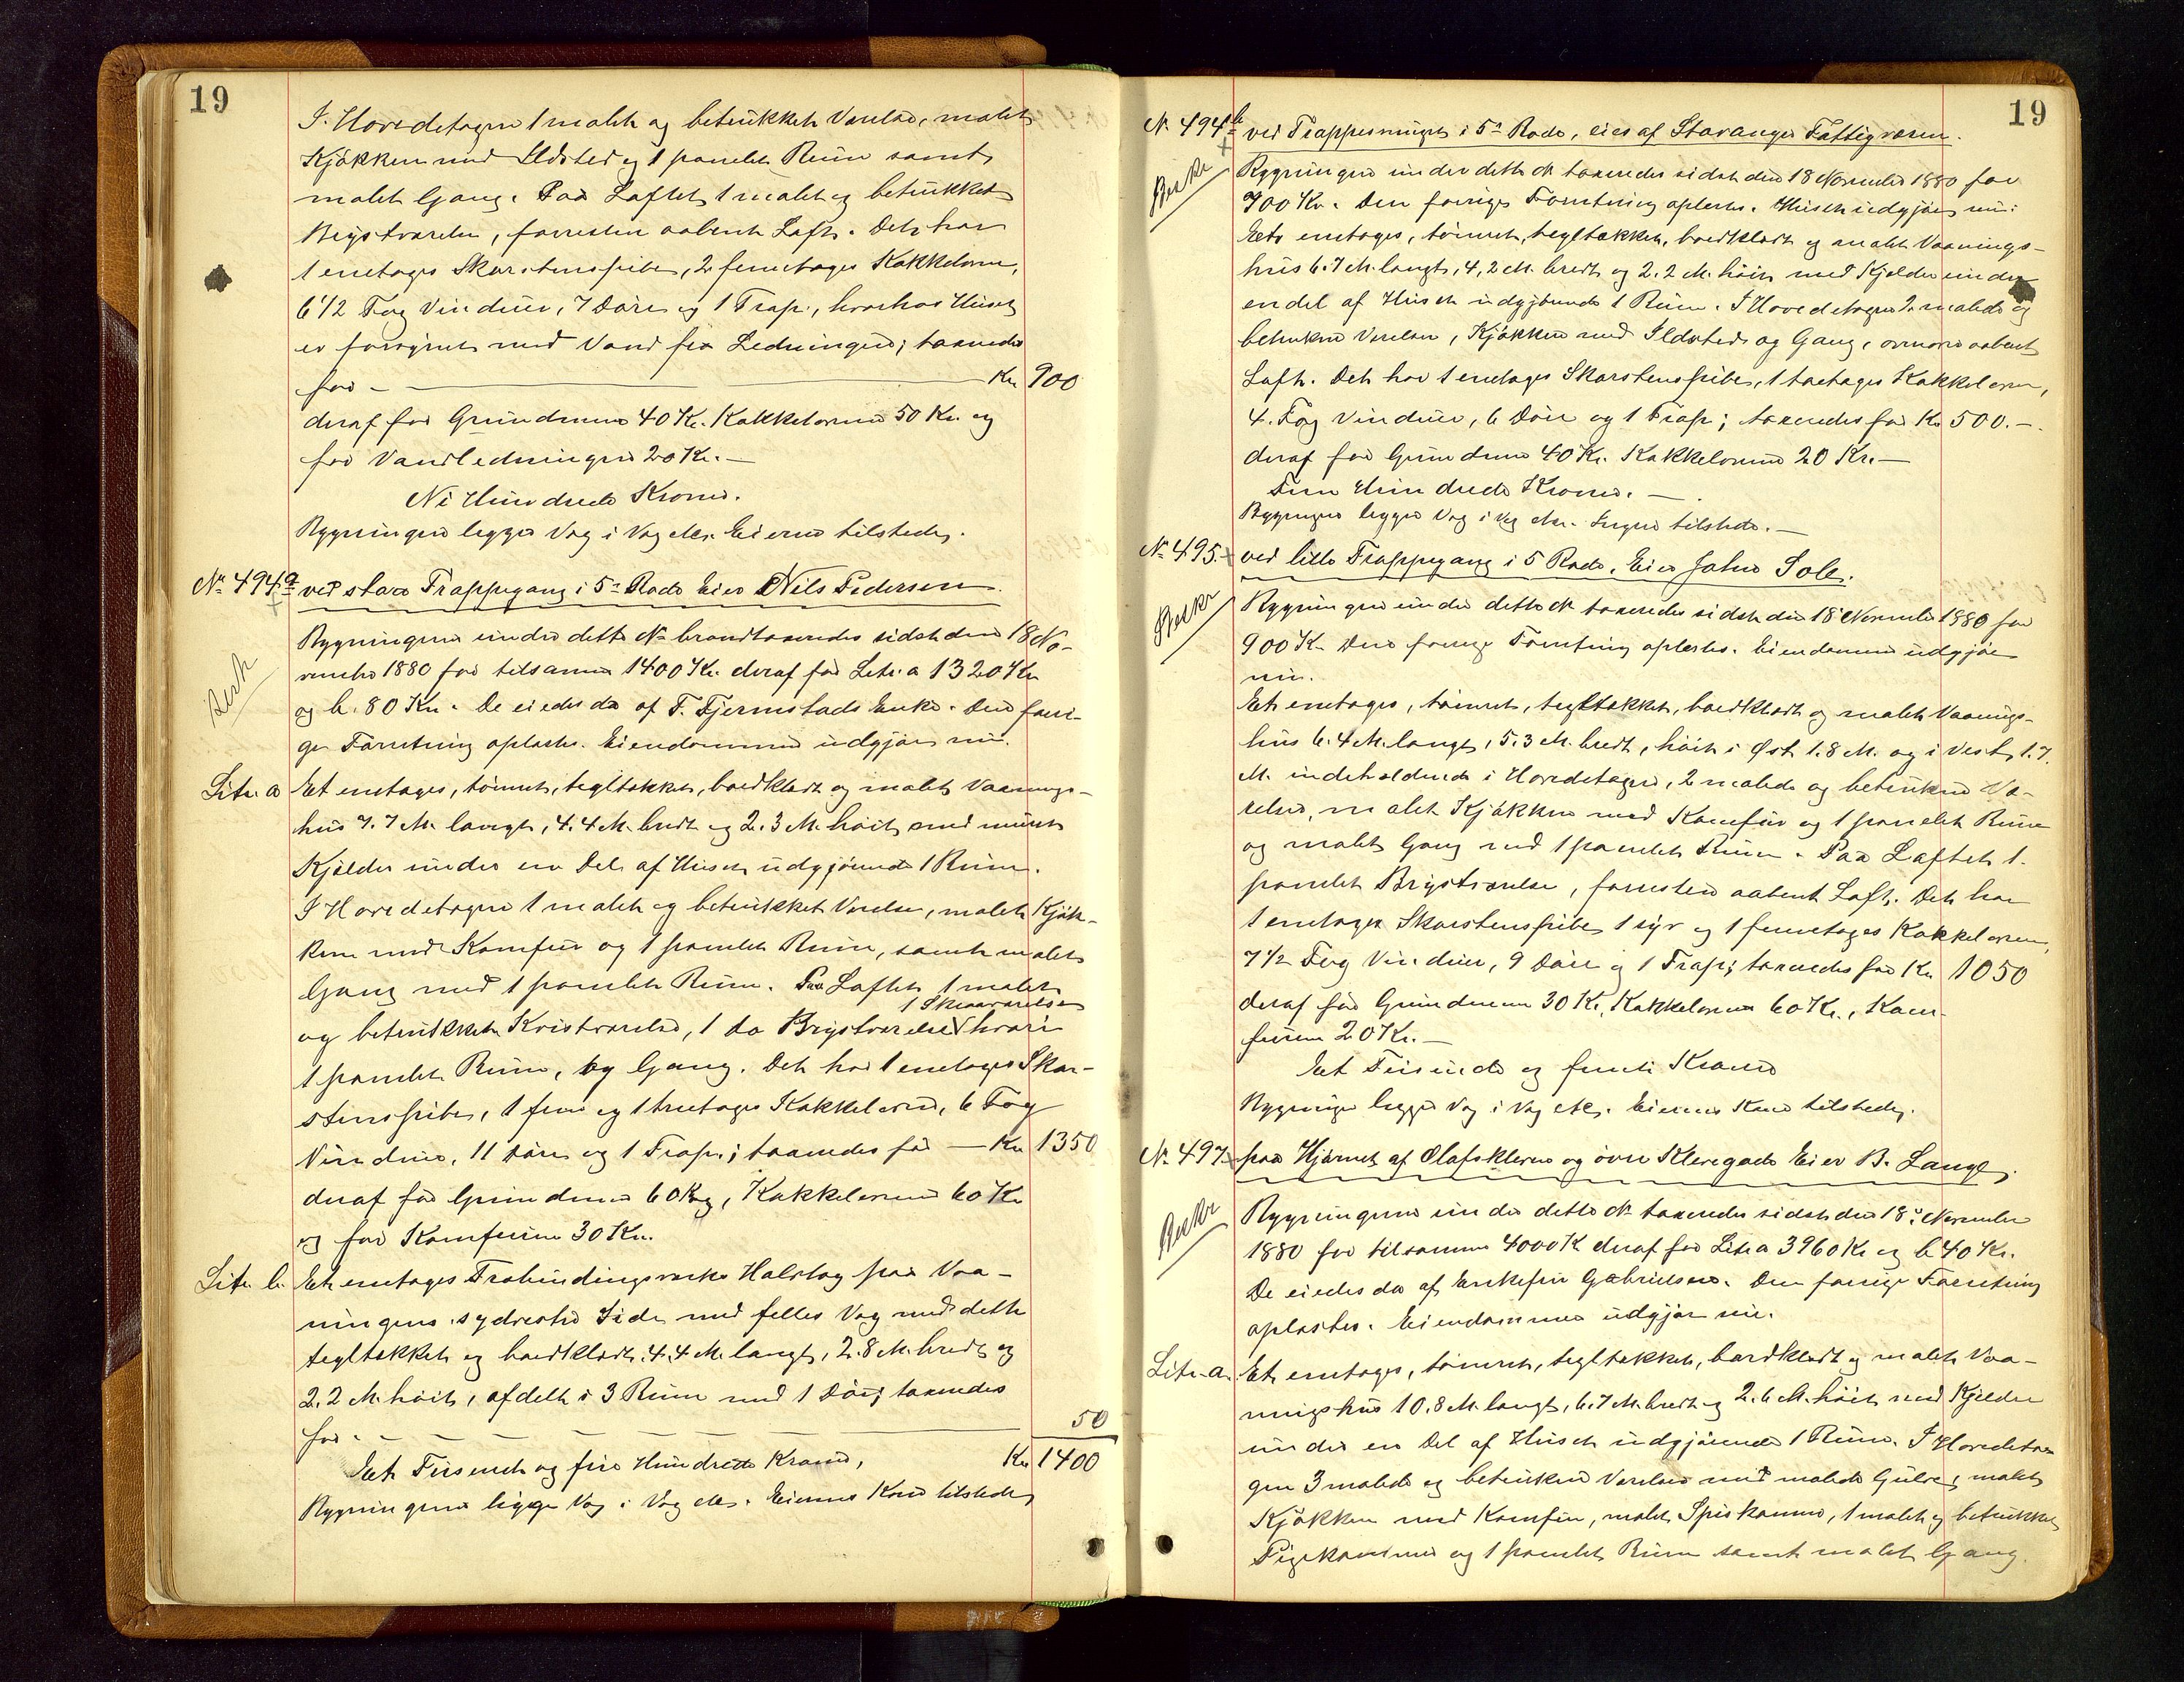 19
I. Hovedetagen 1 malet og betrukket Værelse, malet
Kjøkken med Ildsted og 1 panelet Rum samt
malet Gang. Paa Loftet 1 malet og betrukket
Brystværelse, forresten aabent Loft. Det har
1 enetages Skorstenspibe, 2 femetages Kakkelovne,
6 1/2 Fag Vinduer, 7 Døre og 1 Trap, hvorhos Huset
er forsynet med Vand fra Ledningen; taxeredes
for - Kr. 900
deraf for Grundmuren 40 Kr. Kakkelovnene 50 Kr. og
for Vandledningen 20 Kr. -
Ni Hundrede Kroner.
Bygningen ligger Væg i Væg etc. Eieren tilstede.
No 494.a ved store Trappegang i 5te Rode Eier Nils Pedersen.
Besk
Bygningerne under dette No brandtaxeredes sidst den 18 No-
vember 1880 for tilsammen 1400 Kr. deraf for Litr. a 1320 Kr
og b. 80 Kr. De eiedes da af T. Tjermstads Enke. Den forri-
ge Forretning oplæstes. Eiendommen udgjør nu.
Litr. a Et enetages, tømret, tegltækket, bordklædt og malet Vaanings-
hus 7.7 M. langt, 4.4 M. bredt og 2.3 M. høit med muret
Kjelder under en Del af Huset udgjørende 1 Rum.
I Hovedetagen 1 malet og betrukket Værelse, malet Kjøk-
ken med Komfur og 1 panelet Rum, samt malet
Gang med 1 panelet Rum. Paa Loftet 1 malet
og betrukket Kvistværelse, 1 do Brystværelse 1 Skraaværelse hvori
1 panelet Rum, og Gang. Det har 1 enetages Skor-
stenspibe, 1 fem og 1 treetages Kakkelovne, 6 Fag
Vinduer, 11 Døre og 1 Trap.; taxeredes for - Kr. 1350
deraf for Grundmuren 60 Kr, Kakkelovnene 60 Kr
og for Komfuren 30 Kr.
Litr. b. Et enetages Trabindingsværks Halvtag paa Vaa-
ningens sydvestre Side med fælles Væg med dette
tegltækket og bordklædt, 4.4 M. langt, 2.8 M. bredt og
2.2 M. høit, afdelt i 3 Rum med 1 Dør; taxeredes
for - 50
Et Tusinde og fire Hundrede Kroner, Kr. 1400
Bygningerne ligge Væg i Væg etc. Eierens Kone tilstede
19
No 494b ved Trappesmuget i 5te Rode, eies af Stavanger Fattigvæsen.
Beskr
Bygningen under dette No taxeredes sidst den 18 November 1880 for
700 Kr. Den forrige Forretning oplæstes. Huset udgjør nu:
Et enetages, tømret, tegltækket, bordklædt og malet Vaanings-
hus 6.7 M. langt, 4,2 M. bredt og 2.2 M. høit med Kjelder under
en del af Huset udgjørende 1 Rum. I Hovedetagen 2 malede og
betrukne Værelser, Kjøkken med Ildsted og Gang, ovenover aabent
Loft. Det har 1 enetages Skorstenspibe, 1 toetages Kakkelovn,
4. Fag Vinduer, 6 Døre og 1 Trap; taxeredes for Kr 500.-
deraf for Grundmuren 40 Kr. Kakkelovnen 20 Kr. -
Fem Hundrede Kroner. -
Bygningen ligger Væg i Væg etc. Ingen tilstede. -
No 495. ved lille Trappegang i 5 Rode. Eier Johan Sole.
Beskr
Bygningen under dette No taxeredes sidst den 18 November 1880 for
900 Kr. Den forrige Forretning oplæstes. Eiendommen udgjør
nu.
Et enetages, tømret, tegltækket, bordklædt og malet Vaanings-
hus 6.4 M. langt, 5.3 M. bredt, høit i Øst 1.8 M. og i Vest 1.7.
M. indeholdende i Hovedetagen, 2 malede og betrukne Væ-
relser, malet Kjøkken med Komfur og 1 panelet Rum
og malet Gang med 1 panelet Rum. Paa Loftet 1.
panelet Brystværelse, forresten aabent Loft. Det har
1 enetages Skorstenspibe 1 syv og 1 femetages Kakkelovne,
7 1/2 Fag Vinduer, 9 Døre og 1 Trap; taxeredes for Kr 1050
deraf for Grundmuren 30 Kr, Kakkelovnene 60 Kr., Kom-
furen 20 Kr. -
Et Tusinde og femti Kroner
Bygningen ligger Væg i Væg etc. Eierens Kone tilstede.
No 497. paa Hjørnet af Olafskleven og øvre Klevegade Eier B. Lange.
Beskr
Bygningerne under dette No taxeredes sidst den 18. November
1880 for tilsammen 4000 Kr deraf for Litr a 3960 Kr og b 40 Kr.
De eiedes da af Enkefru Gabrielsen. Den forrige Forretning
oplæstes. Eiendommen udgjør nu.
Litr. a. Et enetages, tømret, tegltækket, bordklædt og malet Vaa-
ningshus 10.8 M. langt, 6.7 M. bredt og 2.6 M. høit med Kjelder
under en Del af Huset udgjørende 1 Rum. I Hovedeta-
gen 3 malede og betrukne Værelser med malede Gulve, malet
Kjøkken med Komfur, malet Spiskammer, 1 malet og betrukket
Pigekammer og 1 panelet Rum samt malet Gang.